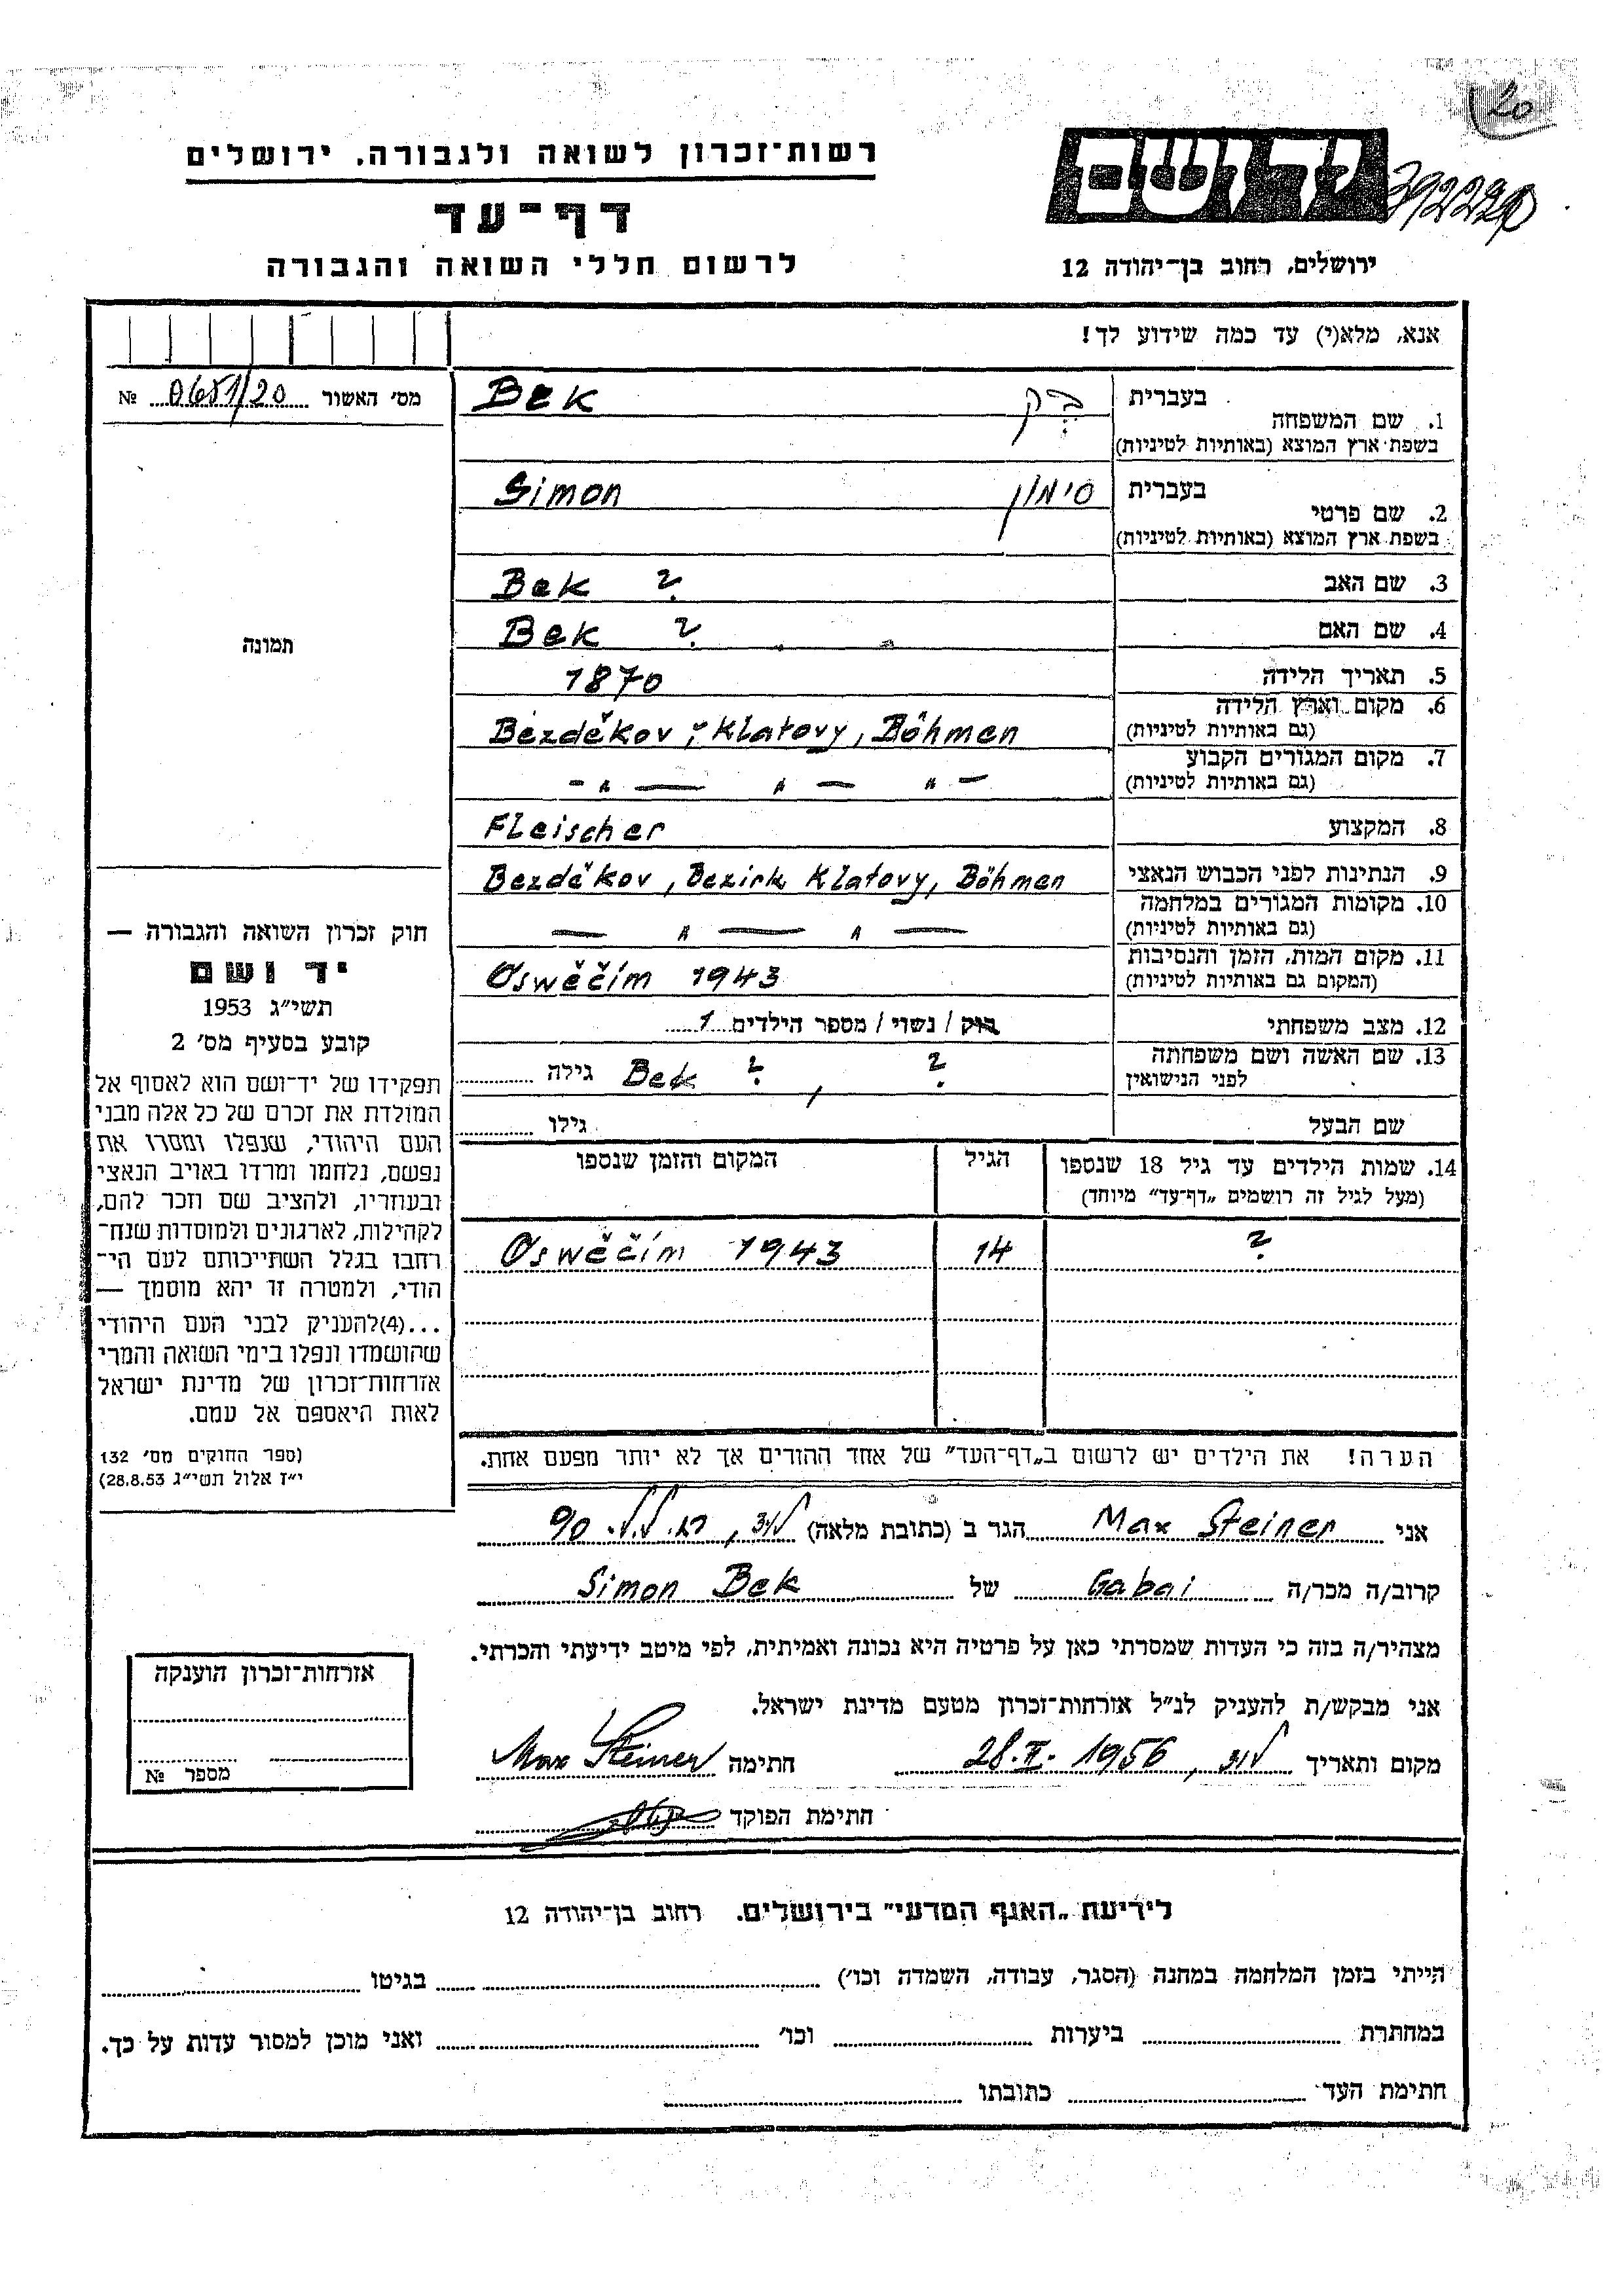 20
רשות־זכרון לשואה ולגבורה, ירושלים
ידושם
דף־עד
לרשום חללי השואה והגבורה
ירושלים, רחוב בן־יהודה 12
אנא, מלא(י) עד כמה שידוע לך!
מס' האשור 0681/20 №
בעברית בק Bek
1. שם המשפחה
בשפת ארץ המוצא (באותיות לטיניות)
בעברית סימון Simon
2. שם פרטי
בשפת ארץ המוצא (באותיות לטיניות)
3. שם האב Bek ?
4. שם האם Bek ?
5. תאריך הלידה 1870
6. מקום וארץ הלידה
(גם באותיות לטיניות) Bezděkov, Klatovy, Böhmen
7. מקום המגורים הקבוע
(גם באותיות לטיניות) - " — " — " —
8. המקצוע Fleischer
9. הנתינות לפני הכבוש הנאצי Bezděkov, Bezirk Klatovy, Böhmen
10. מקומות המגורים במלחמה
(גם באותיות לטיניות) — " — " —
11. מקום המות, הזמן והנסיבות
(המקום גם באותיות לטיניות) Oswěčím 1943
12. מצב משפחתי רוק / נשוי / מספר הילדים 1
13. שם האשה ושם משפחתה
לפני הנישואין Bek ? , ? גילה
שם הבעל גילו
14. שמות הילדים עד גיל 18 שנספו הגיל המקום והזמן שנספו
(מעל לגיל זה רושמים „דף־עד" מיוחד)
? 14 Oswěčím 1943
תמונה
חוק זכרון השואה והגבורה —
יד ושם
תשי"ג 1953
קובע בסעיף מס' 2
תפקידו של יד־ושם הוא לאסוף אל
המולדת את זכרם של כל אלה מבני
העם היהודי, שנפלו ומסרו את
נפשם, נלחמו ומרדו באויב הנאצי
ובעוזריו, ולהציב שם וזכר להם,
לקהילות, לארגונים ולמוסדות שנח־
רחבו בגלל השתייכותם לעם הי־
הודי, ולמטרה זו יהא מוסמך —
...(4)להעניק לבני העם היהודי
שהושמדו ונפלו בימי השואה והמרי
אזרחות־זכרון של מדינת ישראל
לאות היאספם אל עמם.
(ספר החוקים מס' 132
י"ז אלול תשי"ג 28.8.53)
הערה! את הילדים יש לרשום ב„דף־העד" של אחד ההורים אך לא יותר מפעם אחת.
אני Max Steiner הגר ב (כתובת מלאה) לוד, 90
קרוב/ה מכר/ה Gabai של Simon Bek
מצהיר/ה בזה כי העדות שמסרתי כאן על פרטיה היא נכונה ואמיתית, לפי מיטב ידיעתי והכרתי.
אני מבקש/ת להעניק לנ"ל אזרחות־זכרון מטעם מדינת ישראל.
מקום ותאריך לוד, 28.II.1956 חתימה Max Steiner
חתימת הפוקד
אזרחות־זכרון הוענקה
מספר №
לידיעת „האגף המדעי" בירושלים, רחוב בן־יהודה 12
הייתי בזמן המלחמה במחנה (הסגר, עבודה, השמדה וכו') בגיטו
במחתרת ביערות וכו' ואני מוכן למסור עדות על כך.
חתימת העד כתובתו